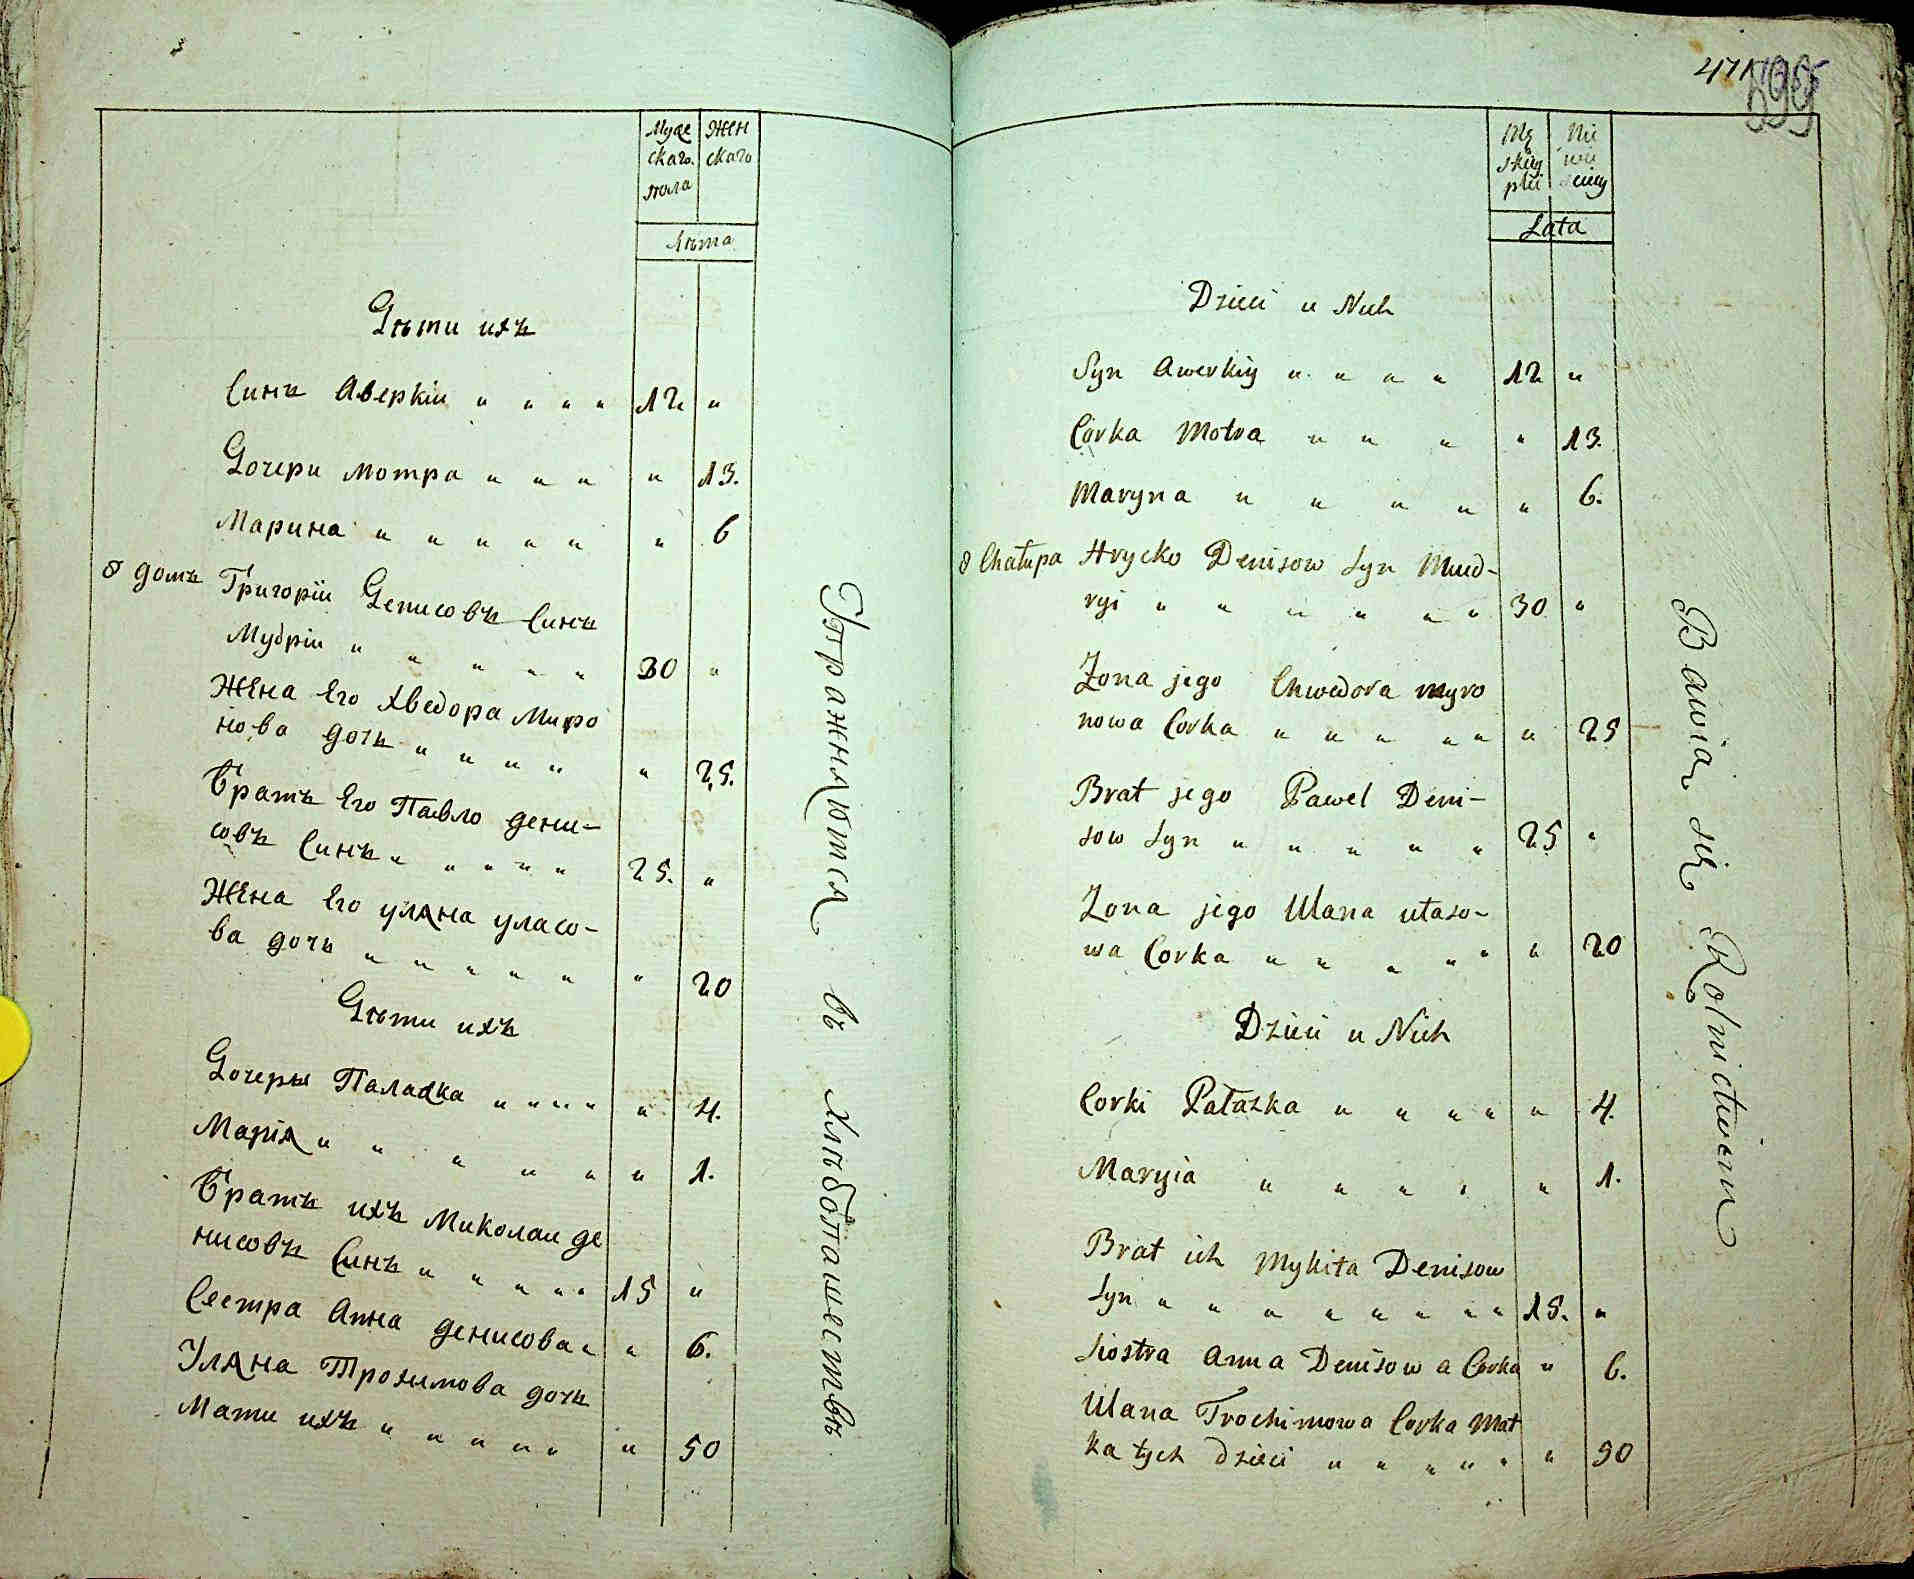 Муже
скаго
пола
Жен
скаго
Лѣта
Дѣти ихъ
Синъ Аверкіи " " " " 12 "
Дочери Мотра " " " " 13.
Марина " " " " " " 6
8 домъ Григоріи Денисовъ Синъ
Мудріи " " " " " 30 "
Жена Его Хведора Миро
нова дочь " " " " " 25.
Братъ Его Павло дени-
совъ Синъ " " " " " 25. "
Жена Его уляна уласо-
ва дочь " " " " " " 20
Дѣти ихъ
Дочеры Палажка " " " " " 4.
Марія " " " " " " 1.
Братъ ихъ Миколаи де
нисовъ Синъ " " " " " 15 "
Сестра Анна денисова " " 6.
Уляна Трохимова дочь
Мати ихъ " " " " " " 50
Упражняются въ хлѣбопашествѣ
471
599
Mę
skiey
płci
Nie
wie
sciey
Lata
Dzieci u Nich
Syn Awerkiy " " " " 12 "
Corka Motra " " " " 13.
Maryna " " " " " 6.
8 Chałupa Hrycko Denisow Syn Mud-
ryi " " " " " " 30 "
Zona jego Chwedora myro
nowa Corka " " " " " " 25
Brat jego Paweł Deni-
sow Syn " " " " " 25 "
Zona jego Ulana ułaso-
wa Corka " " " " " " 20
Dzieci u Nich
Corki Pałazka " " " " " 4.
Maryia " " " " " 1.
Brat ich Mykita Denisow
Syn " " " " " " " " 15. "
Siostra Anna Denisowa Corka " 6.
Ulana Trochimowa Corka Mat
ka tych dzieci " " " " " " 50
Bawią się Rolnictwem